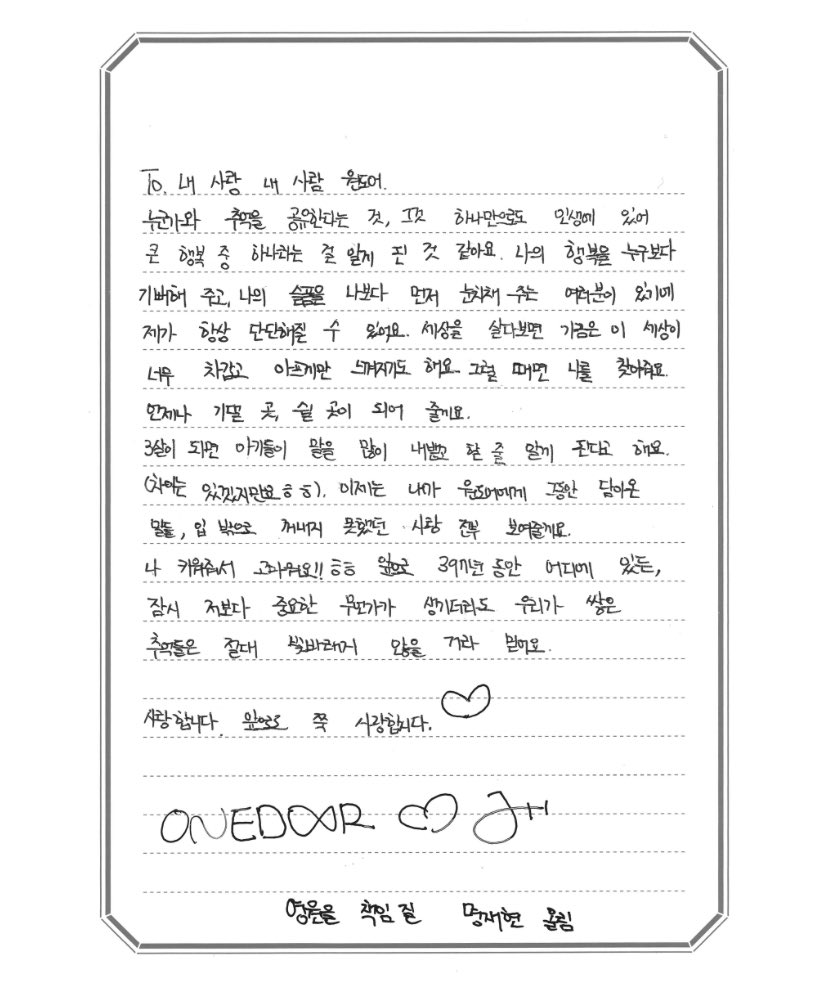 To. 내 사랑 내 사람 원도어.
누군가와 추억을 공유한다는 것, 그것 하나만으로도 인생에 있어
큰 행복 중 하나라는 걸 알게 된 것 같아요. 나의 행복을 누구보다
기뻐해 주고, 나의 슬픔을 나보다 먼저 눈치채 주는 여러분이 있기에
제가 항상 단단해질 수 있어요. 세상을 살다보면 가끔은 이 세상이
너무 차갑고 아프게만 느껴지기도 해요. 그럴 때면 나를 찾아줘요.
언제나 기댈 곳, 쉴 곳이 되어 줄게요.
3살이 되면 아기들이 말을 많이 내뱉고 할 줄 알게 된다고 해요.
(차이는 있겠지만요ㅎㅎ). 이제는 내가 원도어에게 그동안 담아온
말들, 입 밖으로 꺼내지 못했던 사랑 전부 보여줄게요.
나 키워줘서 고마워요!! ㅎㅎ 앞으로 397년 동안 어디에 있든,
잠시 저보다 중요한 무언가가 생기더라도 우리가 쌓은
추억들은 절대 빛바래지 않을 거라 믿어요.
사랑합니다. 앞으로도 쭉 사랑합니다. ♡
ONEDOOR ♡ JH
영원을 책임 질 명재현 올림